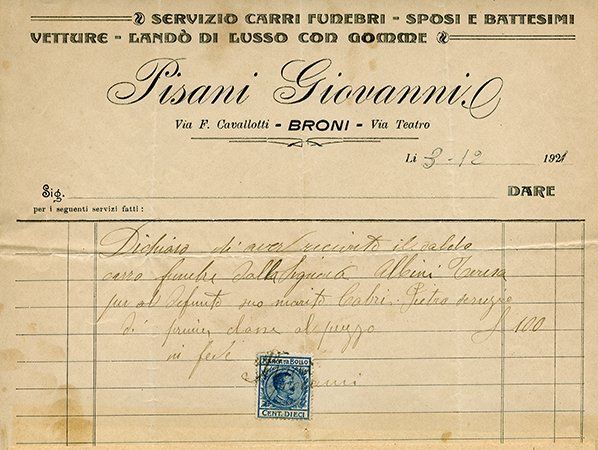 SERVIZIO CARRI FUNEBRI - SPOSI E BATTESIMI
VETTURE - LANDÒ DI LUSSO CON GOMME
Pisani Giovanni
Via F. Cavallotti - BRONI - Via Teatro
Li 3-12 1921
Sig. DARE
per i seguenti servizi fatti:
Dichiaro d'aver ricevuto il saldo
carro funebre dalla Signora Albini Teresa
per al defunto suo marito Cabri Pietro servizio
di prima classe al prezzo £ 100
in fede
MARCA DA BOLLO
CENT. DIECI